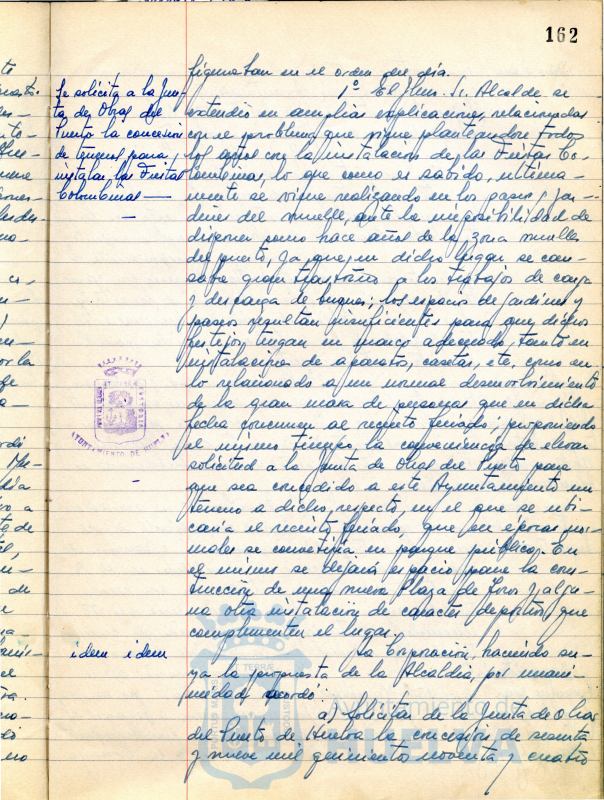 162
Se solicita a la Jun-
ta de Obras del
Puerto la concesión
de terrenos para
instalar las Fiestas
Colombinas —
figuraban en el orden del día.
1º El Ilmo. Sr. Alcalde se
extendió en amplias explicaciones relacionadas
con el problema que sigue planteándose todos
los años con la instalación de las Fiestas Co-
lombinas, lo que como es sabido, última-
mente se viene realizando en los paseos y jar-
dines del muelle, ante la imposibilidad de
disponer como hace años de la zona muelles
del puerto, ya que en dicho lugar se cau-
saba gran trastorno a los trabajos de carga
y descarga de buques; los espacios de jardines y
paseos resultan insuficientes para que dichos
festejos tengan un marco adecuado, tanto en
instalación de aparatos, casetas, etc. como en
lo relacionado a un normal desenvolvimiento
de la gran masa de personas que en dicha
fecha concurren al recinto feriado; proponiendo
al mismo tiempo, la conveniencia de elevar
solicitud a la Junta de Obras del Puerto para
que sea concedido a este Ayuntamiento un
terreno a dicho respecto, en el que se ubi-
caría el recinto feriado, que en épocas nor-
males se convertiría en parque público. En
el mismo se dejará espacio para la cons-
trucción de una nueva Plaza de Toros y algu-
na otra instalación de carácter deportivo que
complementen el lugar.
idem idem
La Corporación, haciendo su-
ya la propuesta de la Alcaldía, por unani-
midad acordó:
a) Solicitar de la Junta de Obras
del Puerto de Huelva la concesión de sesenta
y nueve mil quinientos noventa y cuatro
AYUNTAMIENTO DE HUELVA
Ayuntamiento de
HUELVA